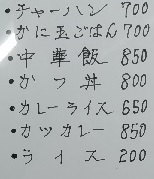 ・チャーハン 700
・かに玉ごはん 700
・中華飯 850
・かつ丼 800
・カレーライス 650
・カツカレー 850
・ライス 200